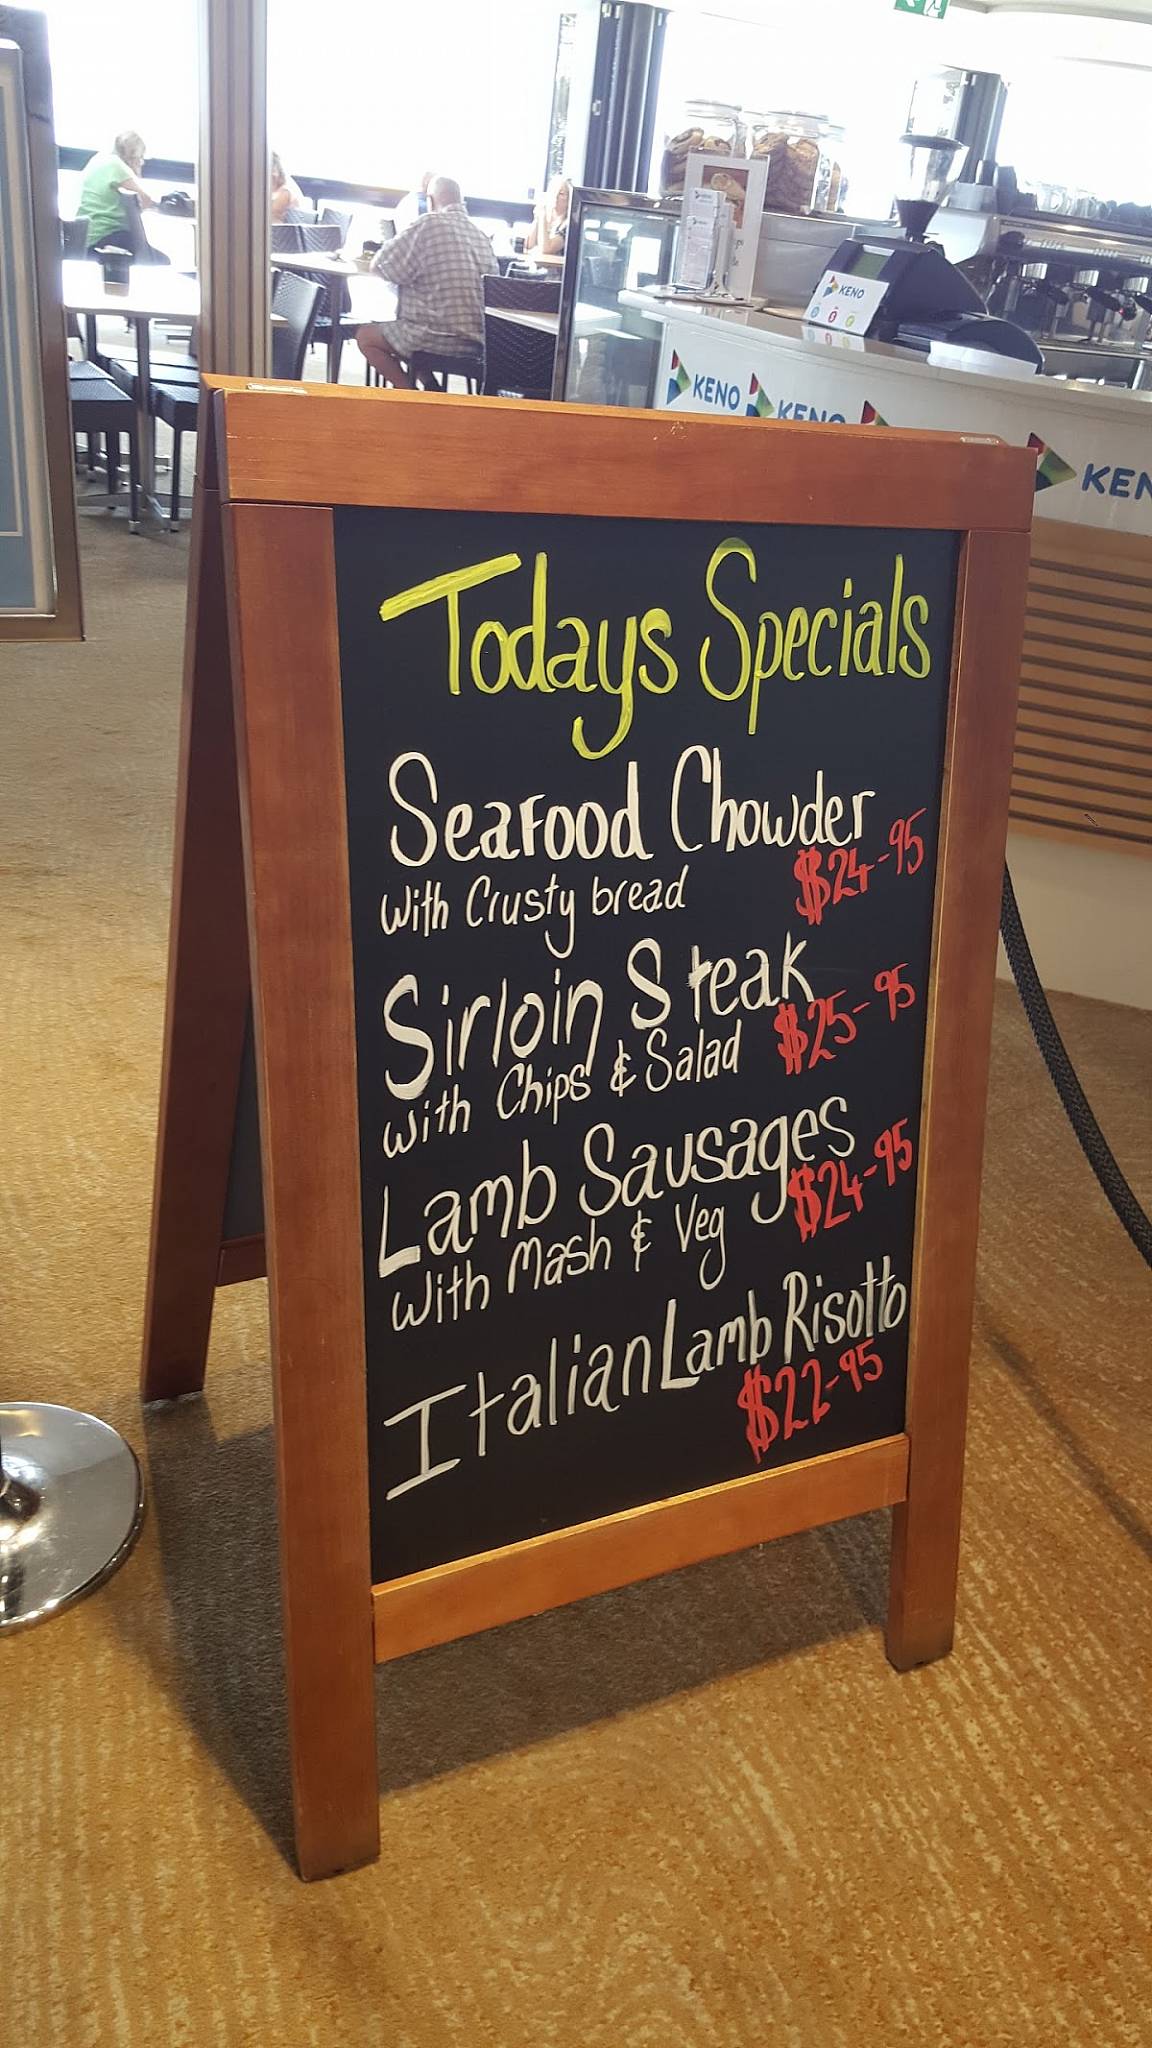 KENO
KENO
KENO
KEN
Todays Specials
Seafood Chowder
With Crusty bread $24-95
Sirloin Steak
With Chips & Salad $25-95
Lamb Sausages
With Mash & Veg $24-95
Italian Lamb Risotto
$22-95